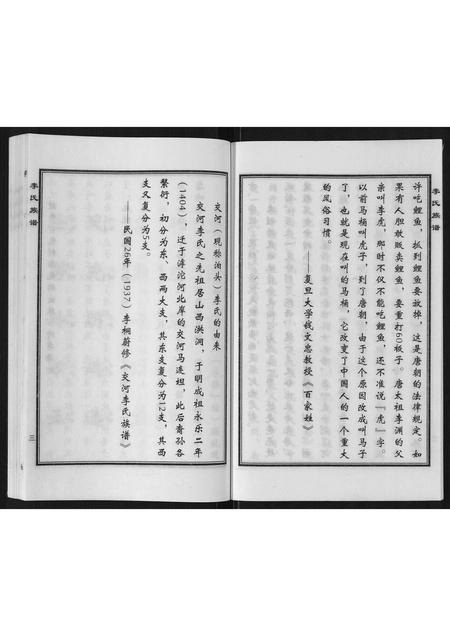 李氏族谱
许吃鲤鱼，抓到鲤鱼要放掉，这是唐朝的法律规定。如
果有人胆敢贩卖鲤鱼，要重打60板子。唐太祖李渊的父
亲叫李虎，那时不仅不能吃鲤鱼，还不准说『虎』字。
以前马桶叫虎子，到了唐朝，由于这个原因改成叫马子
了，也就是现在叫的马桶，它改变了中国人的一个重大
的风俗习惯。
——复旦大学钱文忠教授《百家姓》
交河（现称泊头）李氏的由来
交河李氏之先祖居山西洪洞，于明成祖永乐二年
（1404），迁于滹沱河北岸的交河马连坦，此后裔孙各
繁衍，初分为东、西两大支，其东支复分为12支，其西
支又复分为5支。
——民国26年（1937）李桐蔚修《交河李氏族谱》
李氏族谱
三